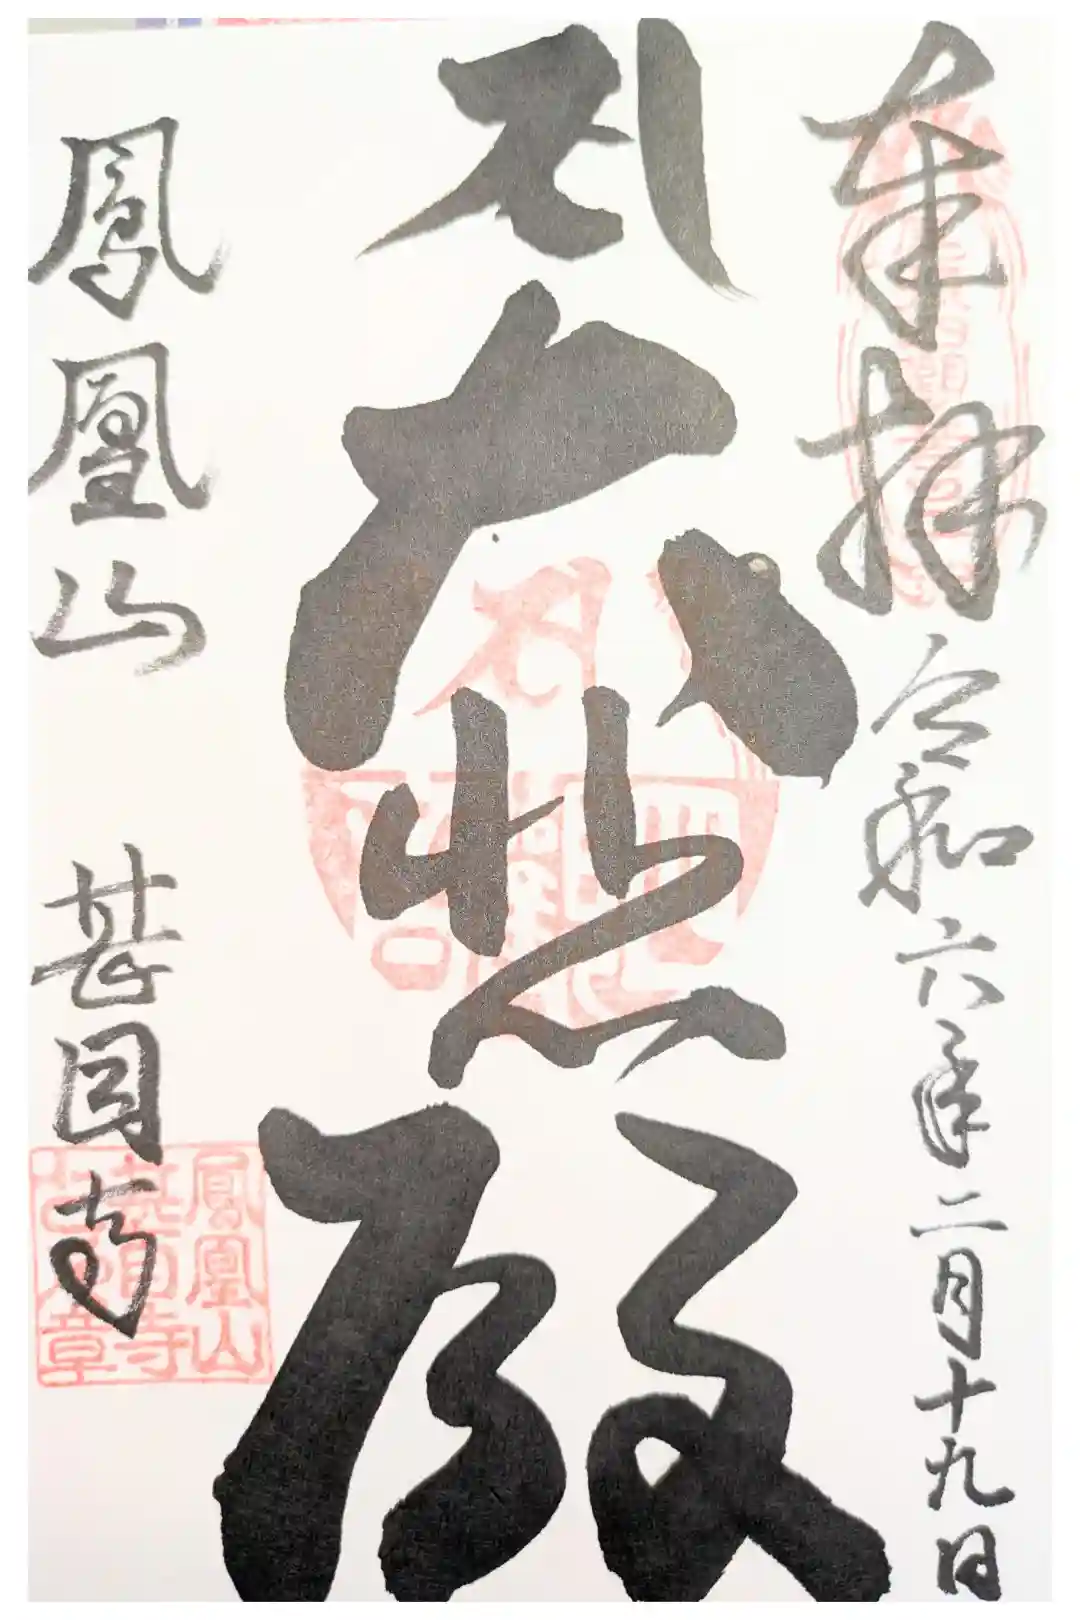 奉拝 令和六年二月十九日
大悲殿
鳳凰山 甚目寺
鳳凰山
甚目寺